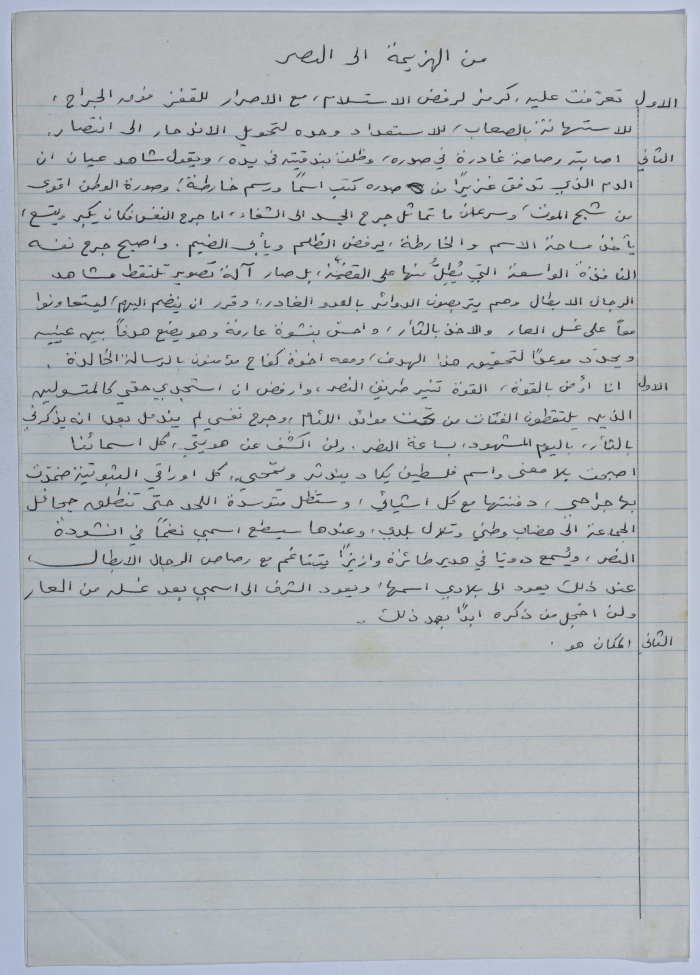 من الهزيمة الى النصر
الاول تعرّفت عليه، كرمز لرفض الاستسلام، مع الاصرار للقفز فوق الجراح،
للاستهانة بالصعاب، للاستعداد وحده لتحويل الاندحار الى انتصار.
الثاني اصابته رصاصة غادرة في صدره، وظلت بندقيته في يده، ويقول شاهد عيان ان
الدم الذي تدفق غزيرًا من صدره كتب اسمًا ورسم خارطة، وصورة الوطن اقوى
من شبح الموت، وسرعان ما تماثل جرح الجسد الى الشفاء، اما جرح النفس فكان يكبر ويتسع،
يأخذ مساحة الاسم والخارطة، يرفض الظلم ويأبى الضيم. واصبح جرح نفسه
النافذة الواسعة التي يُطِلُّ منها على القضيّة، بل صار آلة تصوير تلتقط مشاهد
الرجال الابطال وهم يتربصون الدوائر بالعدو الغادر، وقرر ان ينضم اليهم، ليتعاونوا
معًا على غسل العار والاخذ بالثأر، واحسّ بنشوة عارمة وهو يضع هدفًا بين عينيه
ويحدّد موعدًا لتحقيق هذا الهدف، ومعه اخوة كفاح مؤمنون بالرسالة الخالدة.
الاول انا أؤمن بالقوة، القوة تنير طريق النصر، وارفض ان استجدي حقي كالمتسولين
الذين يلتقطون الفتات من تحت موائد اللئام، وجرح نفسي لم يندمل بعد انه يذكرني
بالثأر، باليوم المشهود، بساعة النصر. ولن اكشف عن هويتي، كل اسمائنا
اصبحت بلا معنى واسم فلسطين يكاد يندثر ويمّحي، كل اوراقي الثبوتية ضمّدت
بها جراحي، دفنتها مع كل اشيائي، وستظل متوسدة اللحد حتى تنطلق جحافل
الجماعة الى هضاب وطني وتلال بلدي، وعندها سيسطع اسمي نغمًا في انشودة
النصر، ويُسمع دويًا في هدير طائرة وازيزًا يتناغم مع رصاص الرجال الابطال،
عند ذلك يعود الى بلادي اسمها، ويعود الشرف الى اسمي بعد غسله من العار
ولن اخجل من ذكره ابدًا بعد ذلك ..
الثاني المكان هو .